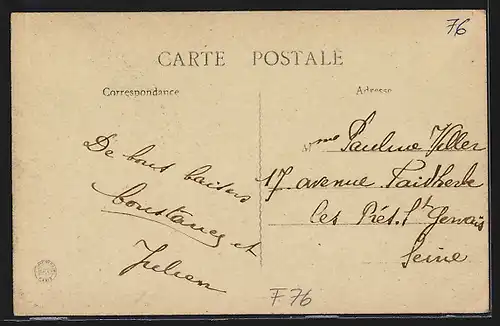 76
CARTE POSTALE
Correspondance
Adresse
De bons baisers
Constance et
Julien
Mme Pauline
17 avenue Faidherbe
Les Prés. St Gervais
Seine
F76